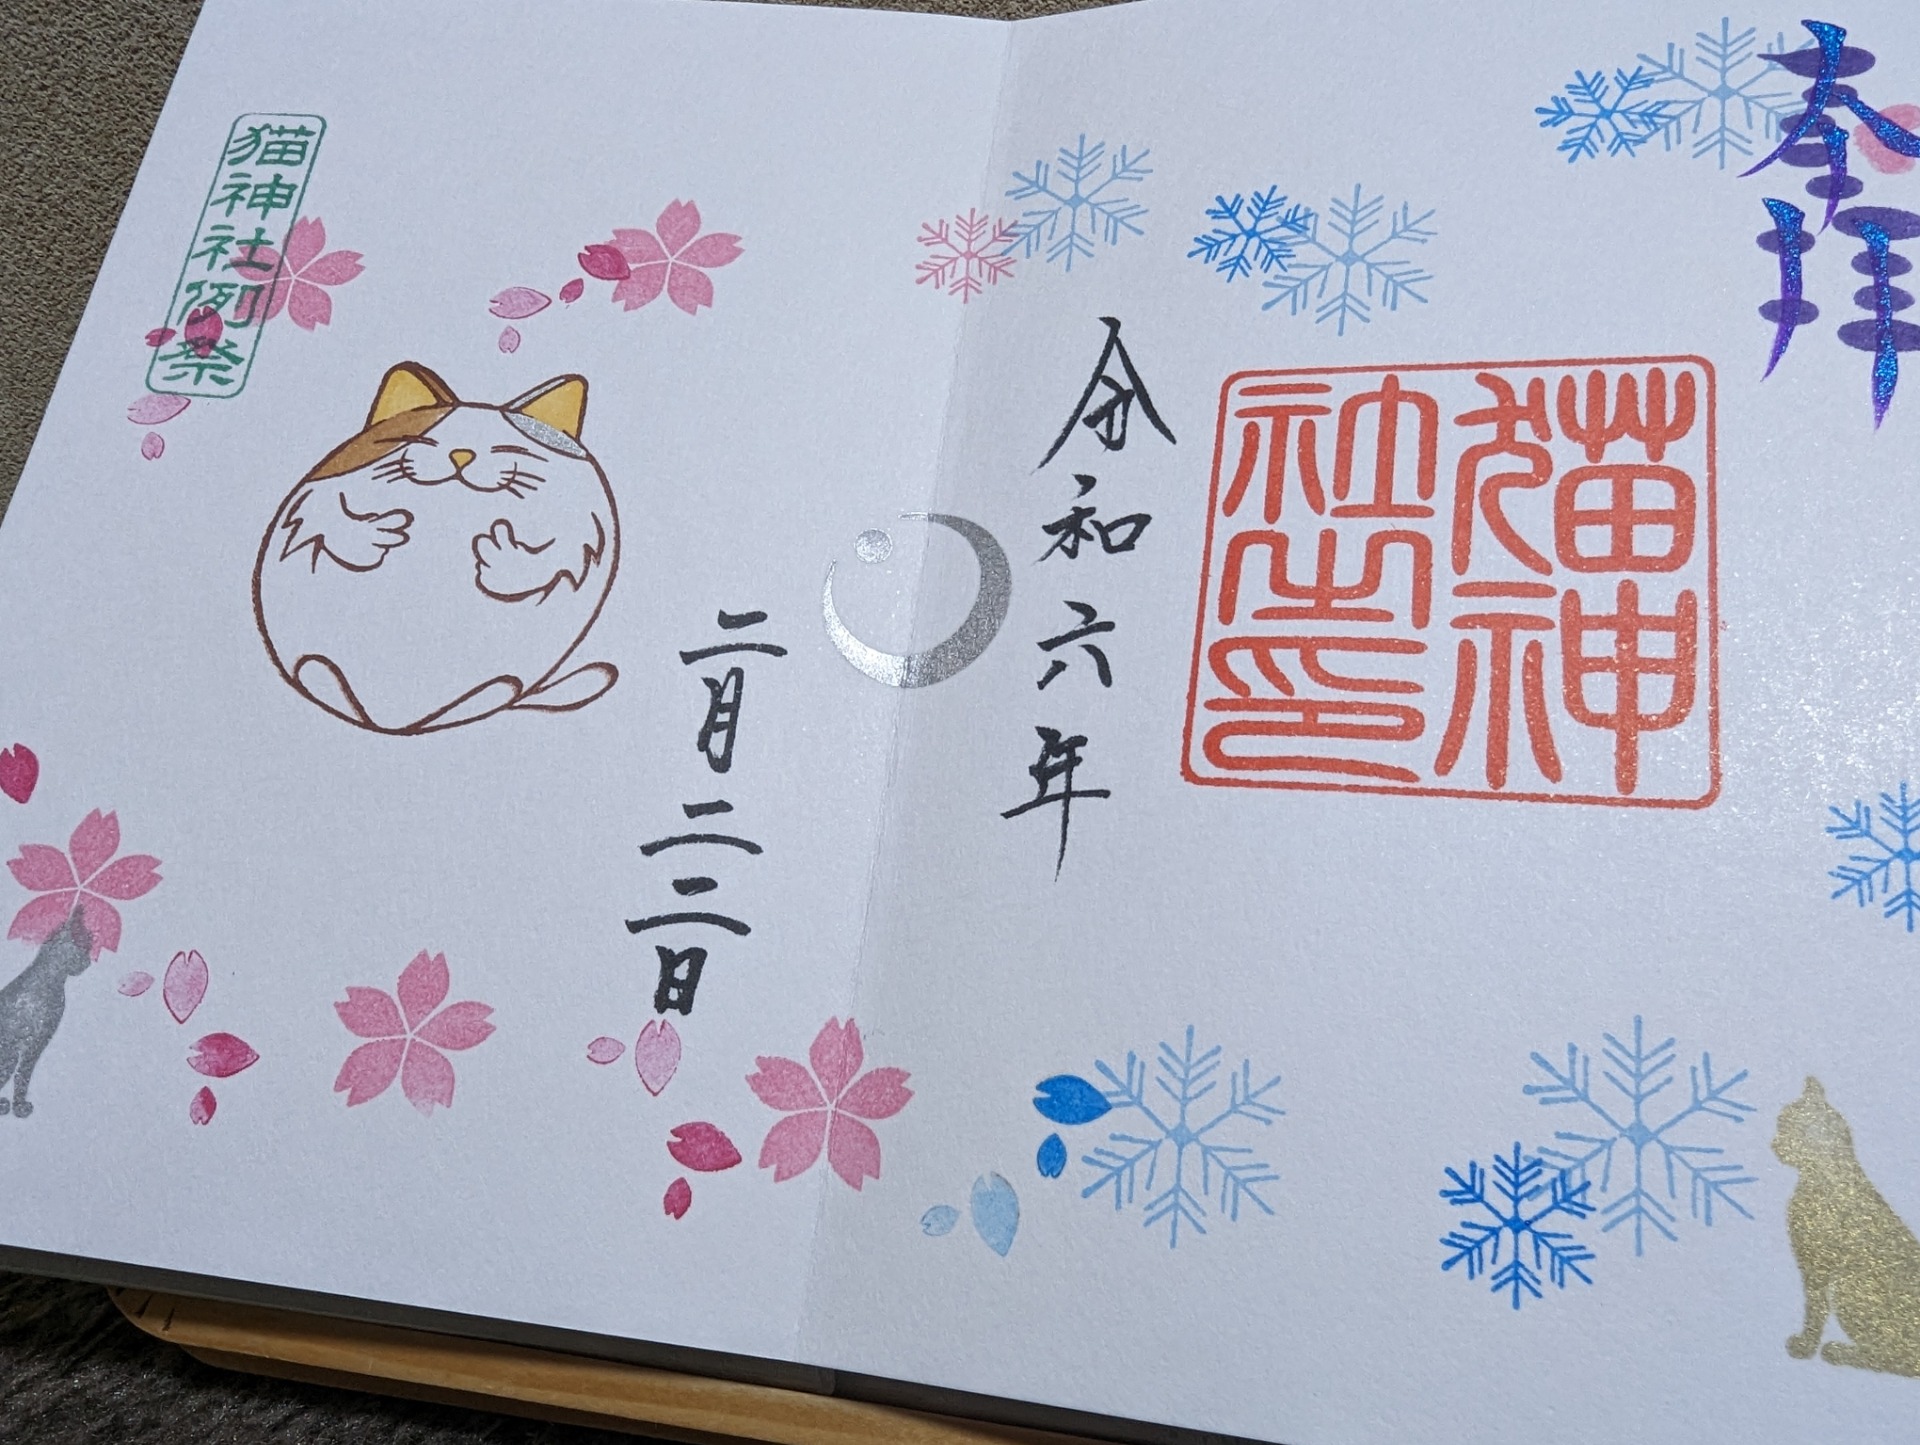 奉拝
猫神
社之印
令和六年
二月二二日
猫神社例祭